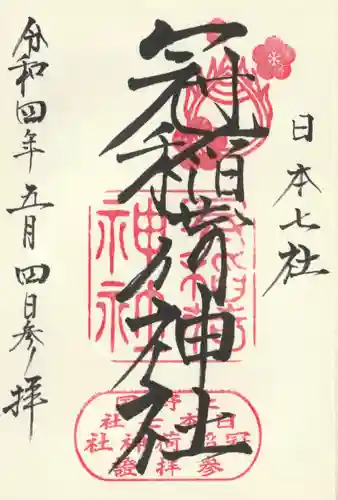 日本七社
冠稲荷神社
令和四年五月四日参拝
上野国
日本七社
冠稲荷神社
参拝證